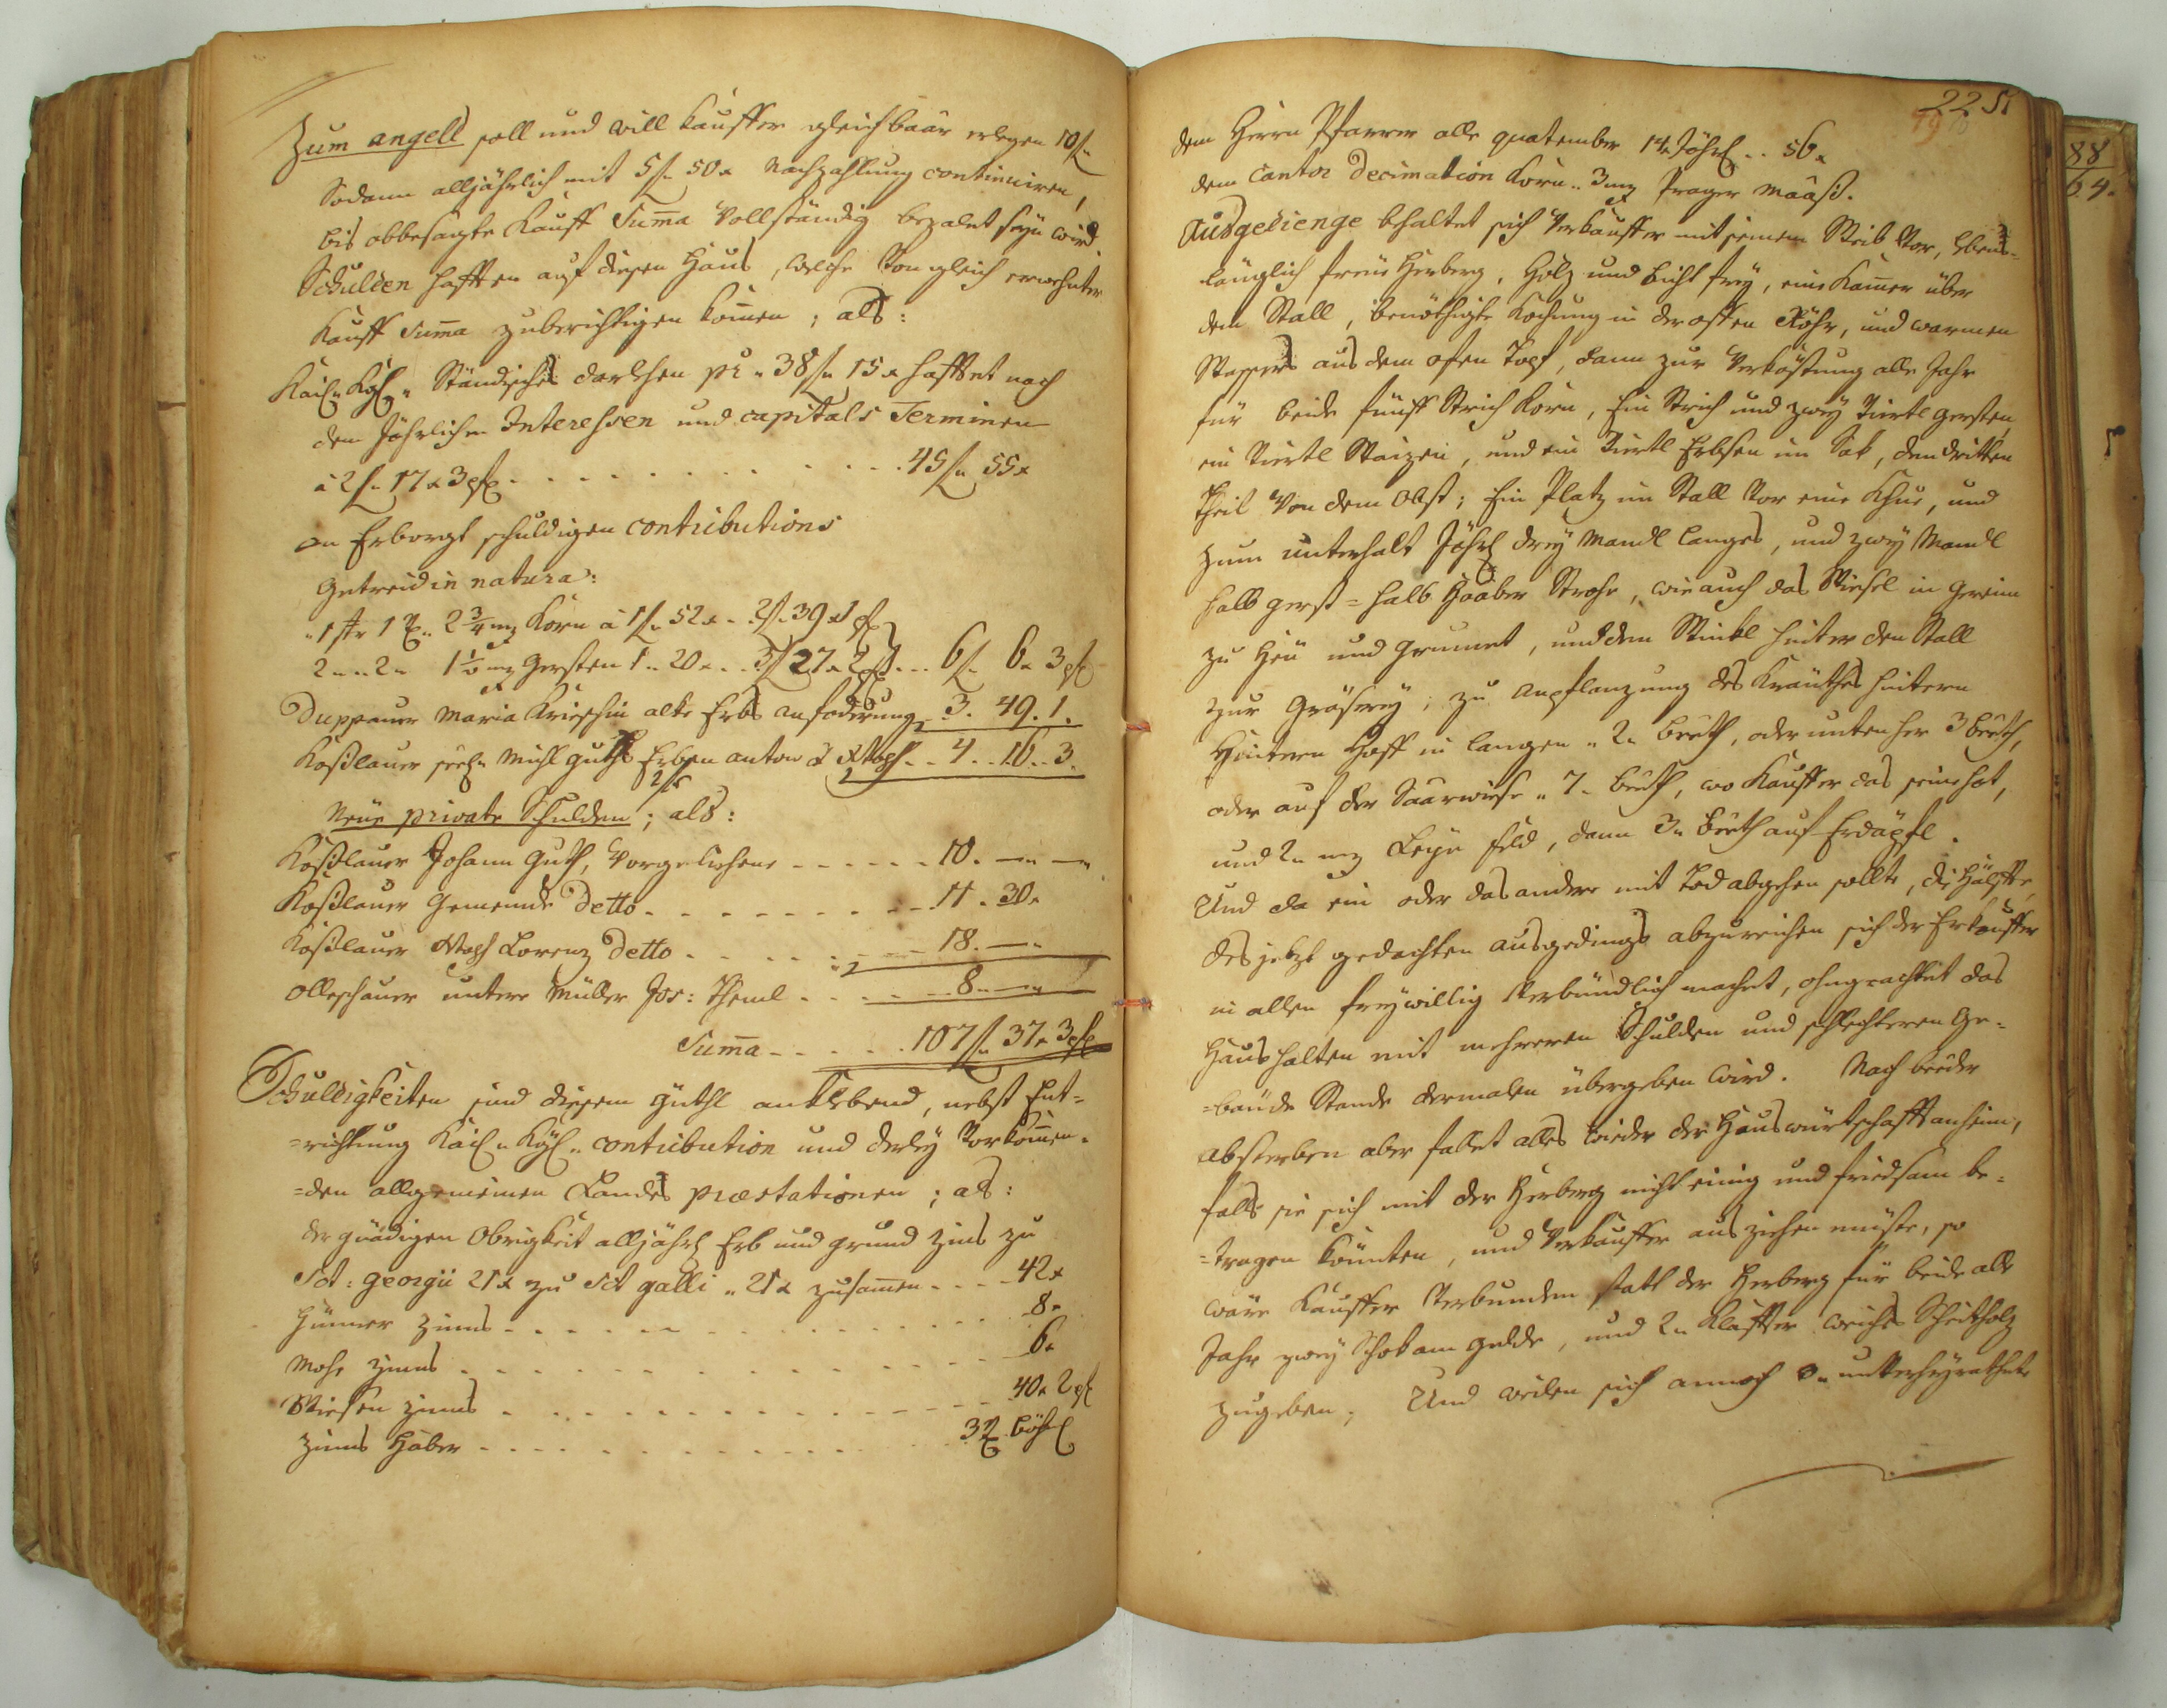 Zum angeld soll und will Kauffer gleichbaar erlegen 10 f.
Sodann alljährlich mit 5 f. 50 x Nachzahlung continuiren,
bis obbesagte Kauff Sum̄a Vollständig bezalet seyn wird
Schulden hafften auf diesen Haus, welche Von gleich erwehnter
Kauff Sum̄a zuberichtigen kom̄en; als:
Kaÿ. Kgl. Ständisches Darlehen pr. 38 f. 15 x hafftet nach
dem Jährlichen Interessen und capitals Terminen
à 2 f. 17 x 3 pf. 45 f. 55 x
an Erborgt schuldigen contributions
Getreid in natura:
1 str 1 V. 2 3/4 mz Korn à 1 f. 52 x 2 f. 39 x 1 pf
2 " 2 " 1 1/2 mz Gersten 1 " 20 x 3 f 27 x 2 pf 6 f. 6 x 3 pf
Duppauer Maria Krieschin alte Erbs anforderung 3. 49. 1.
Koßlauer seel. Michl Guths Erben anton 4. 10. 3.
Neue private Schulden; als:
Koßlauer Johann Guth, Vorgeliehene 10. — —
Koßlauer Gemeinde Detto 11. 30.
Koßlauer Lorenz Detto 18. —
Olleschauer untere Müller Jos: Theml 8. —
Sum̄a 107 f. 37 x 3 pf
Schuldigkeiten sind diesem Güthl anklebend, nebst Ent=
=richtung Kaÿ. Kgl. contribution und derleÿ Vorkom̄en=
=den allgemeinen Landes præstationen; als:
der gnädigen Obrigkeit alljährl Erb und grund Zins zu
Sct: georgii 21 x zu Sct galli 21 x zusam̄en 42 x
Hünner Zinns 8.
Mohe Zinns 6.
Wiesen Zinns 40 x 2 pf
Zinns Haber 3 V.
22 51
19
dem Herrn Pfarrer alle quatember 14 x Jährl 56 x
dem Cantor Decimation Korn 3 mz Prager Maaß.
Ausgedienge behaltet sich Verkauffer mit seinem Weib Vor, lebens=
länglich freie Herberg, Holz und Licht frey, eine Kam̄er über
dem Stall, benöthigte Kochung in der offen Röhr, und warmen
Wassers aus dem ofen Topf, dann zur Verköstung alle Jahr
für beide fünff Strich Korn, Ein Strich und zwey Viertl gersten
ein Viertl Waizen, und ein Viertl Erbsen im Sak, den dritten
Theil Von dem Obst; Ein Platz im Stall Vor eine Khue, und
zum unterhalt Jährl drey Mandl langes, und zwey Mandl
halb gerst= halb Haaber Strohe, wie auch das Wiesel in
zu Heu und Grumet, und dem Winkl hinter den Stall
zur Gräserey; zu Anpflanzung des Krauthes hintern
Hintern Hoff in langen 2 Beeth, oder unten her 3 Beeth,
oder auf der Saarwiese 7 Beeth, wo Kauffer das seine hat,
und 2 mz Leyn feld, dann 3 Beeth auf Erdäpfl.
Und da ein oder das andere mit Tod abgehen sollte, die Hälfte
des jetzt gedachten ausgedings abzureichen sich der Erkauffer
in allen freywillig Verbündlich machet, ohngeachtet das
Haus halten mit mehreren Schulden und schlechteren Ge=
=bäude Stande dermalen übergeben wird. Nach beeder
absterben aber fallet alles wieder der Hauswürtschafft anheim,
falls sie sich mit der Herberg nicht einig und friedsam be=
=tragen könnten, und Verkauffer ausziehen müste, so
wäre Kauffer Verbunden statt der Herberg für beide alle
Jahr zwey Schok am gelde, und 2 Klaffter weiches Scheitholz
zugeben, Und weilen sich annoch 3 unverheyrathete
88
64.